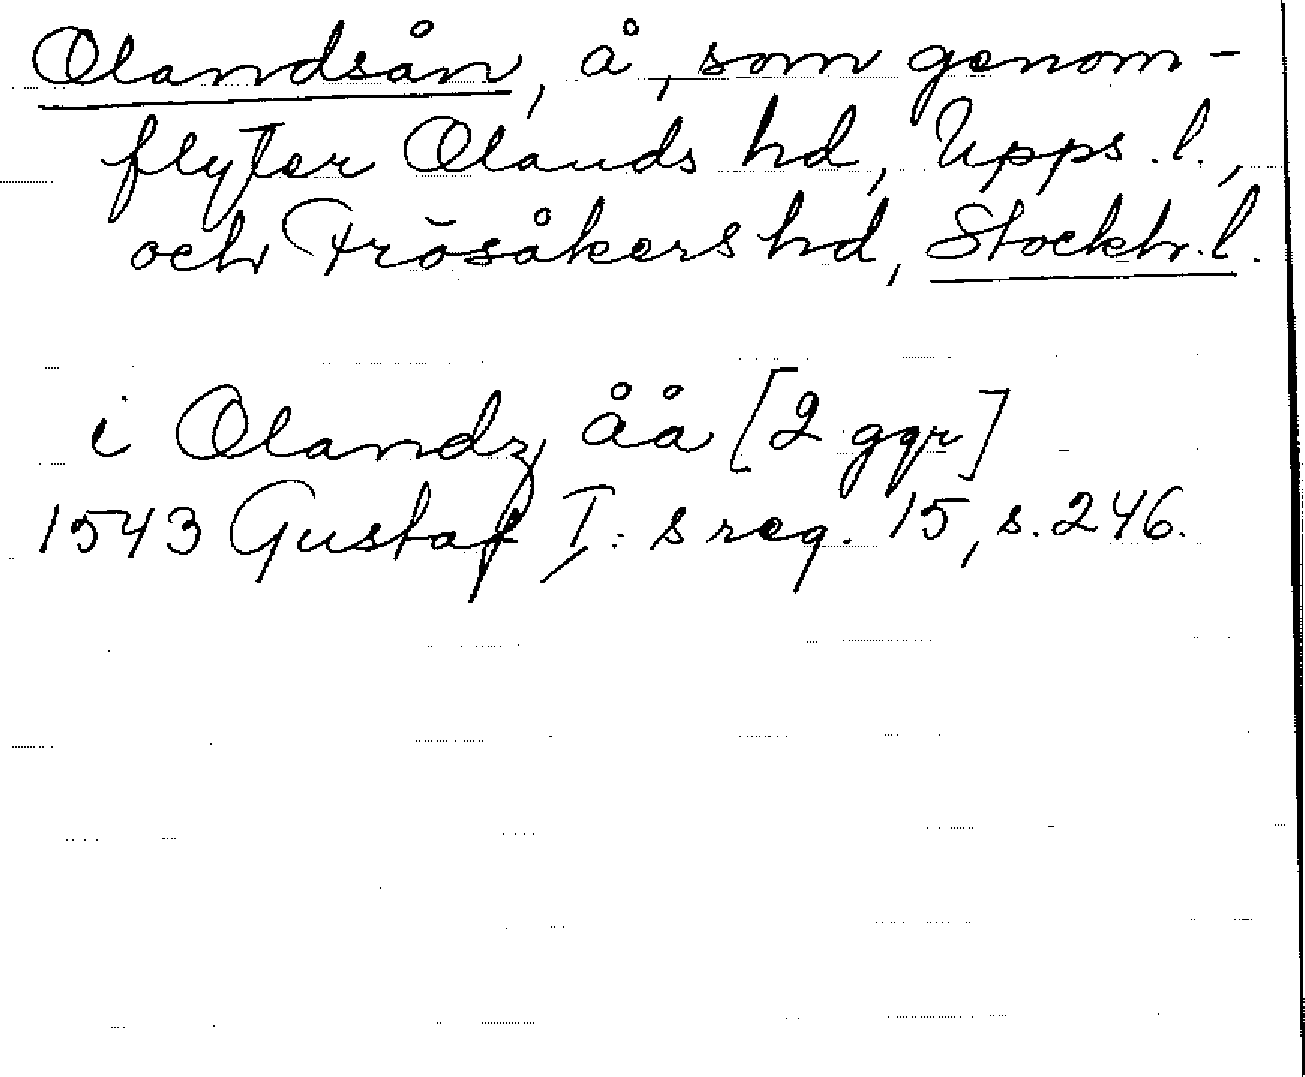 Olandsån, å, som genom-
flyter Olands hd, Upps. l.,
och Frösåkers hd, Stockh. l.
i Olandz åå [2 ggr]
1543 Gustaf I:s reg. 15, s. 246.